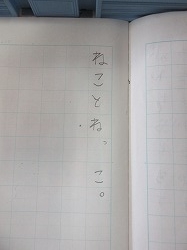 ねことね。こ。